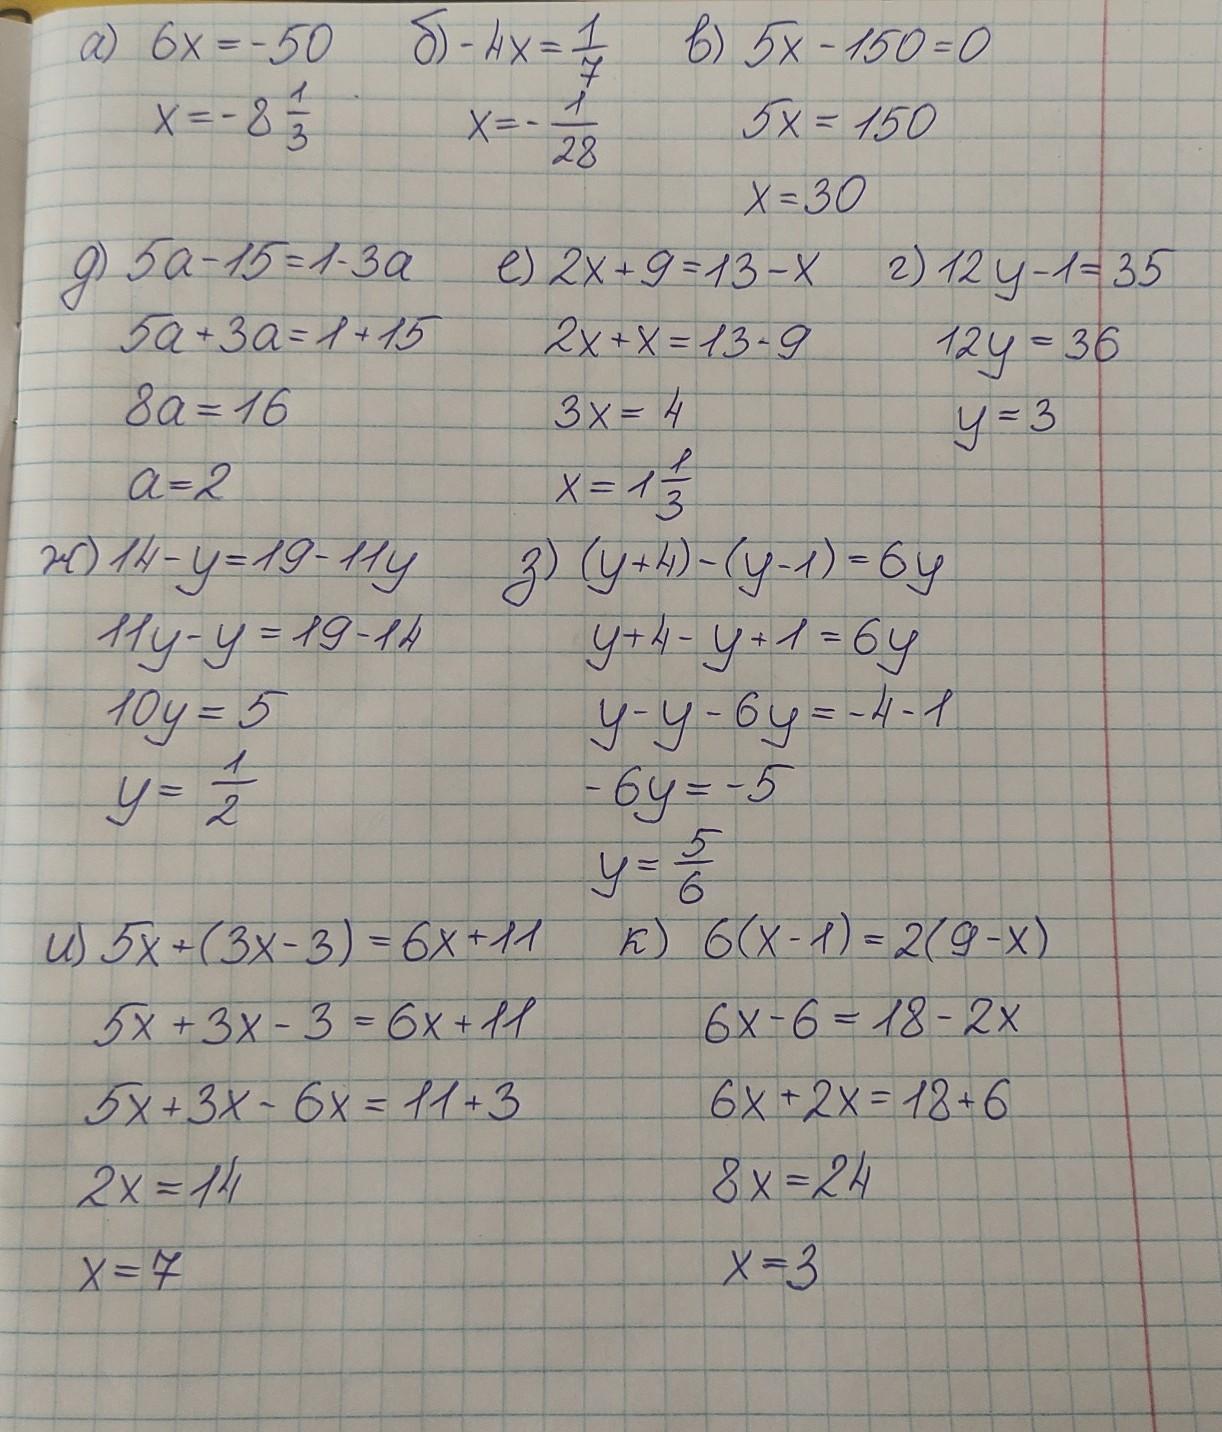 а) 6x = -50
x = -8 1/3
б) -4x = 1/7
x = -1/28
в) 5x - 150 = 0
5x = 150
x = 30
д) 5a - 15 = 1 - 3a
5a + 3a = 1 + 15
8a = 16
a = 2
е) 2x + 9 = 13 - x
2x + x = 13 - 9
3x = 4
x = 1 1/3
г) 12y - 1 = 35
12y = 36
y = 3
ж) 14 - y = 19 - 11y
11y - y = 19 - 14
10y = 5
y = 1/2
з) (y + 4) - (y - 1) = 6y
y + 4 - y + 1 = 6y
y - y - 6y = -4 - 1
-6y = -5
y = 5/6
и) 5x + (3x - 3) = 6x + 11
5x + 3x - 3 = 6x + 11
5x + 3x - 6x = 11 + 3
2x = 14
x = 7
к) 6(x - 1) = 2(9 - x)
6x - 6 = 18 - 2x
6x + 2x = 18 + 6
8x = 24
x = 3